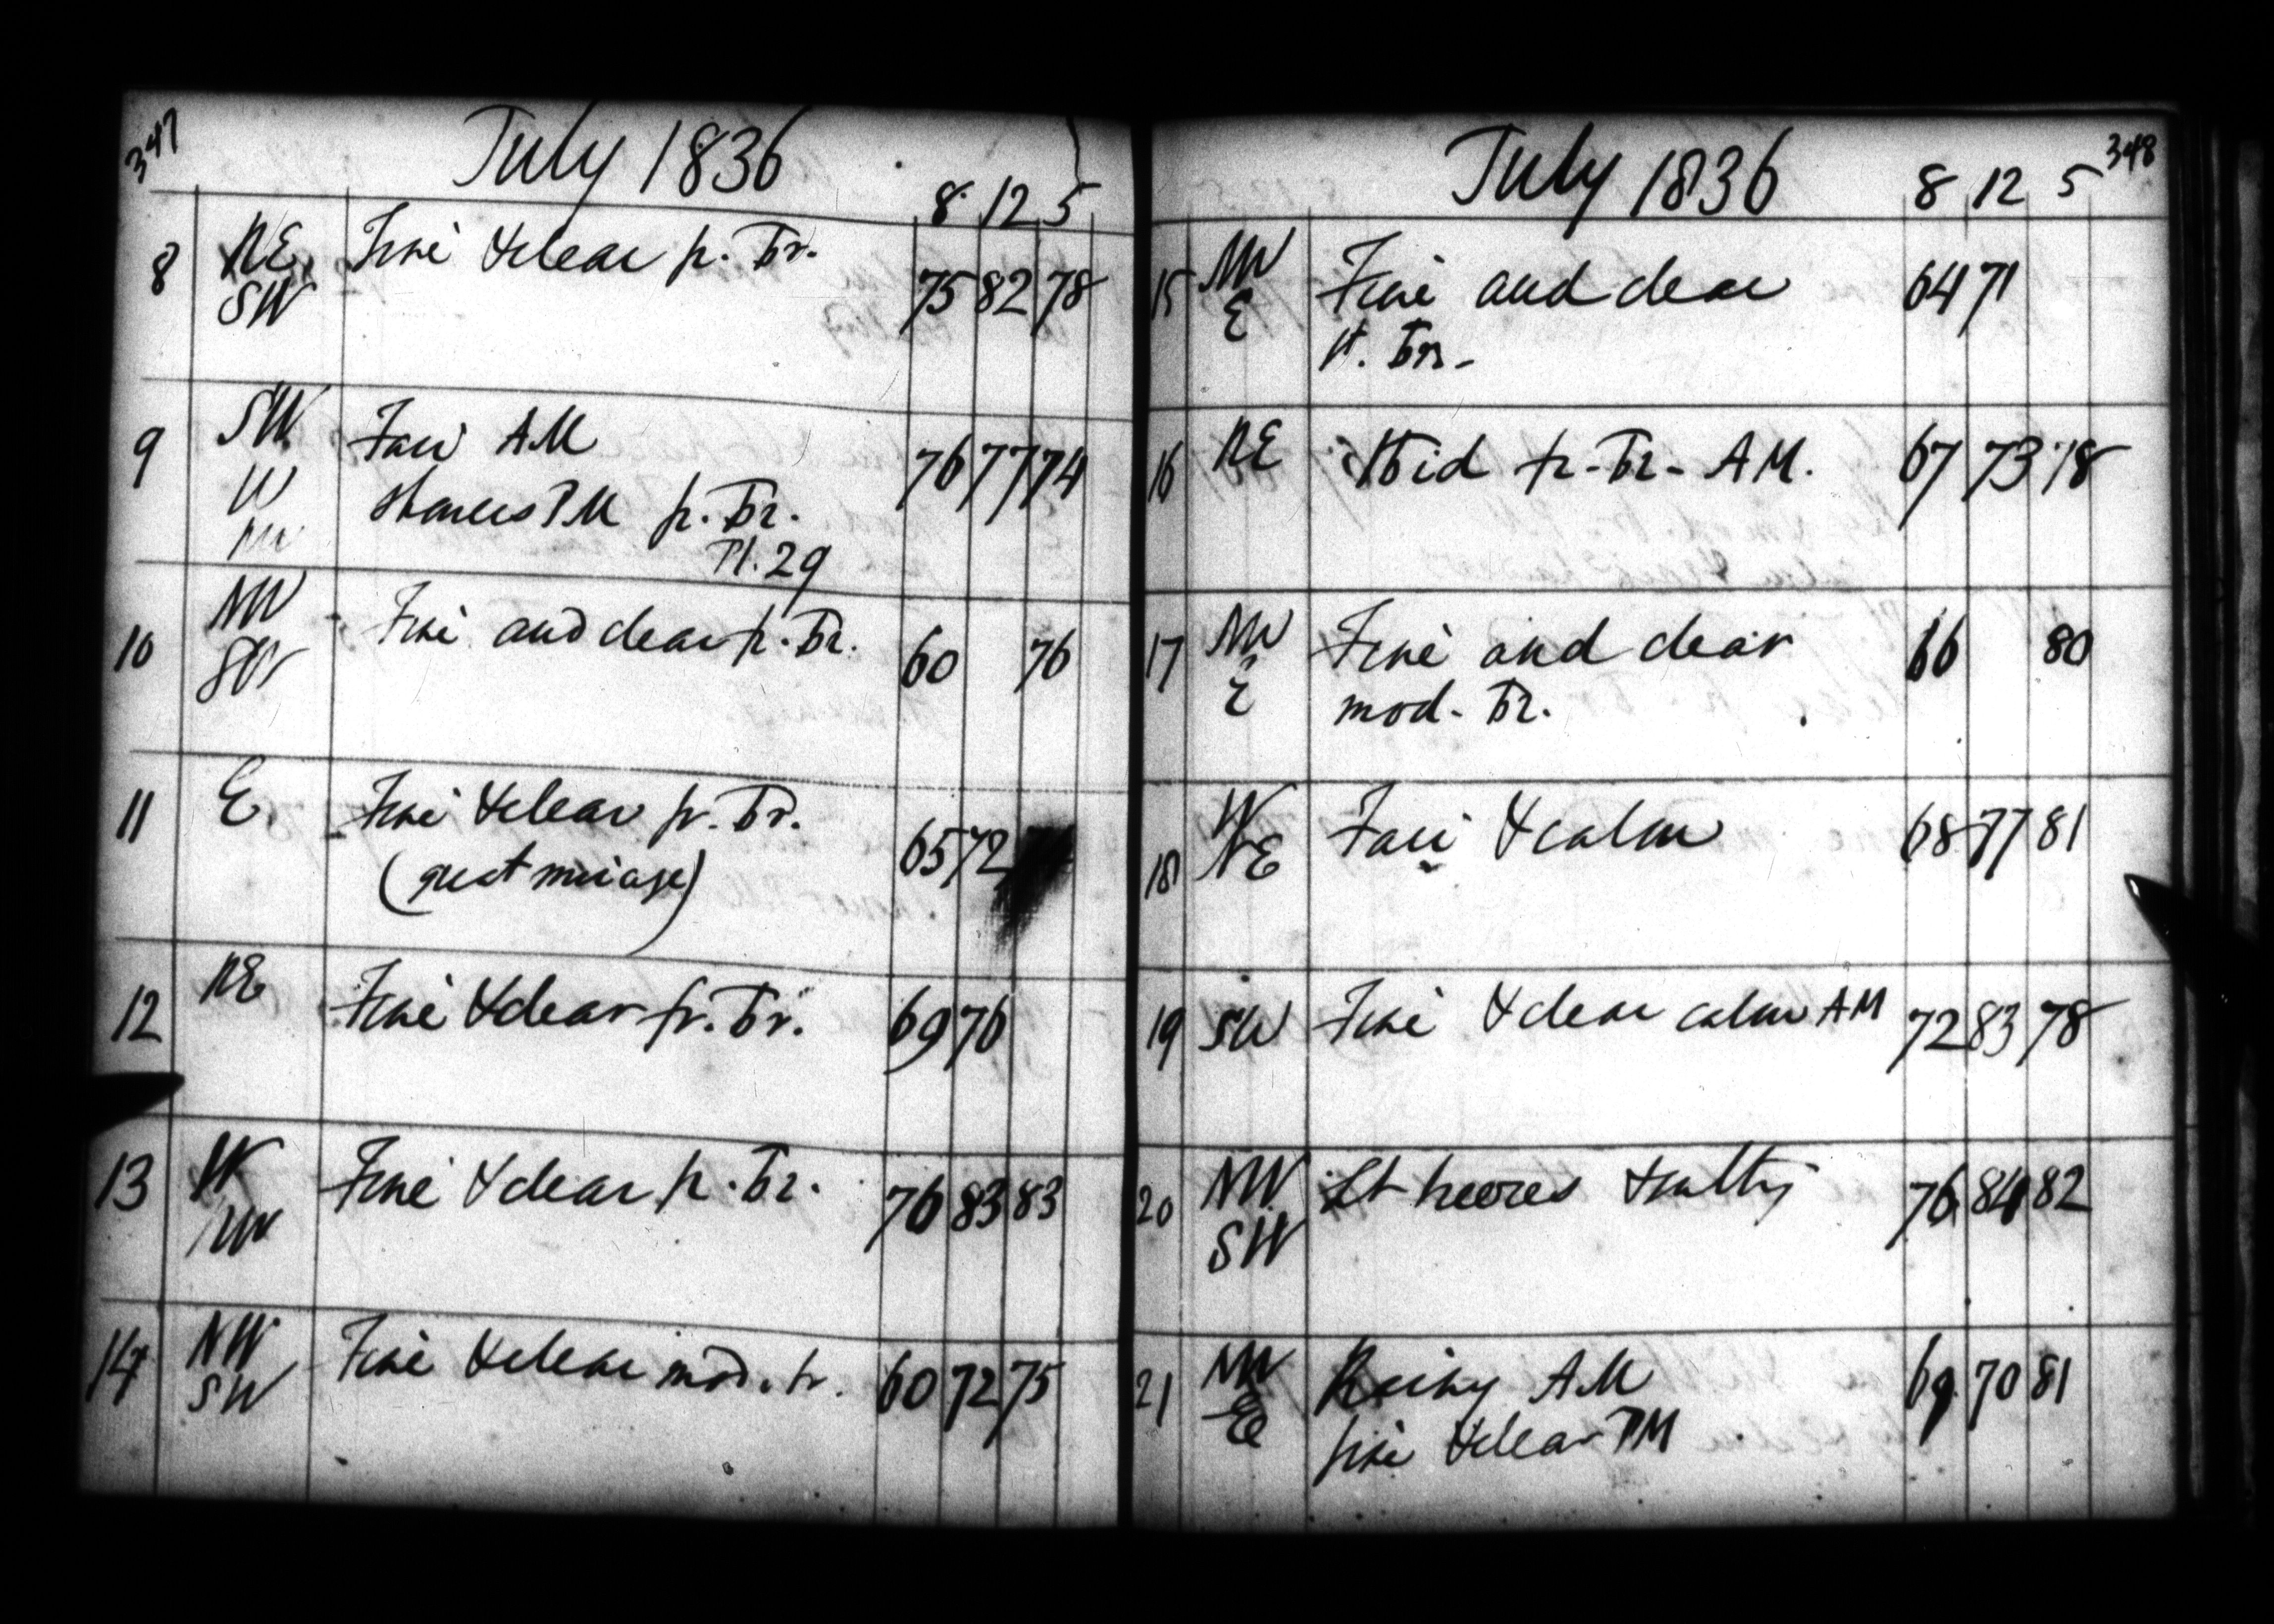 347
July 1836
8 12 5
8 NE Fine & clear fr. Br. 75 82 78
SW
9 SW Fair A.M 76 77 74
W showers P.M fr. Br.
NW Pl. 29
10 NW Fine and clear fr. Br. 60 76
SW
11 E Fine & clear fr. Br. 65 72
(great mirage)
12 NE Fine & clear fr. Br. 69 76
13 W Fine & clear fr. Br. 76 83 83
NW
14 NW Fine & clear mod. br. 60 72 75
SW
348
July 1836
8 12 5
15 NW Fine and clear 64 71
E lt. Br.
16 NE fr. Br. A M. 67 73 78
17 NW Fine and clear 66 80
E mod. Br.
18 W Fair & calm 68 77 81
NE
19 SW Fine & clear calm A M 72 83 78
20 NW Lt breezes & sultry 76 84 82
SW
21 NW Rainy A.M 69 70 81
E fine & clear P M